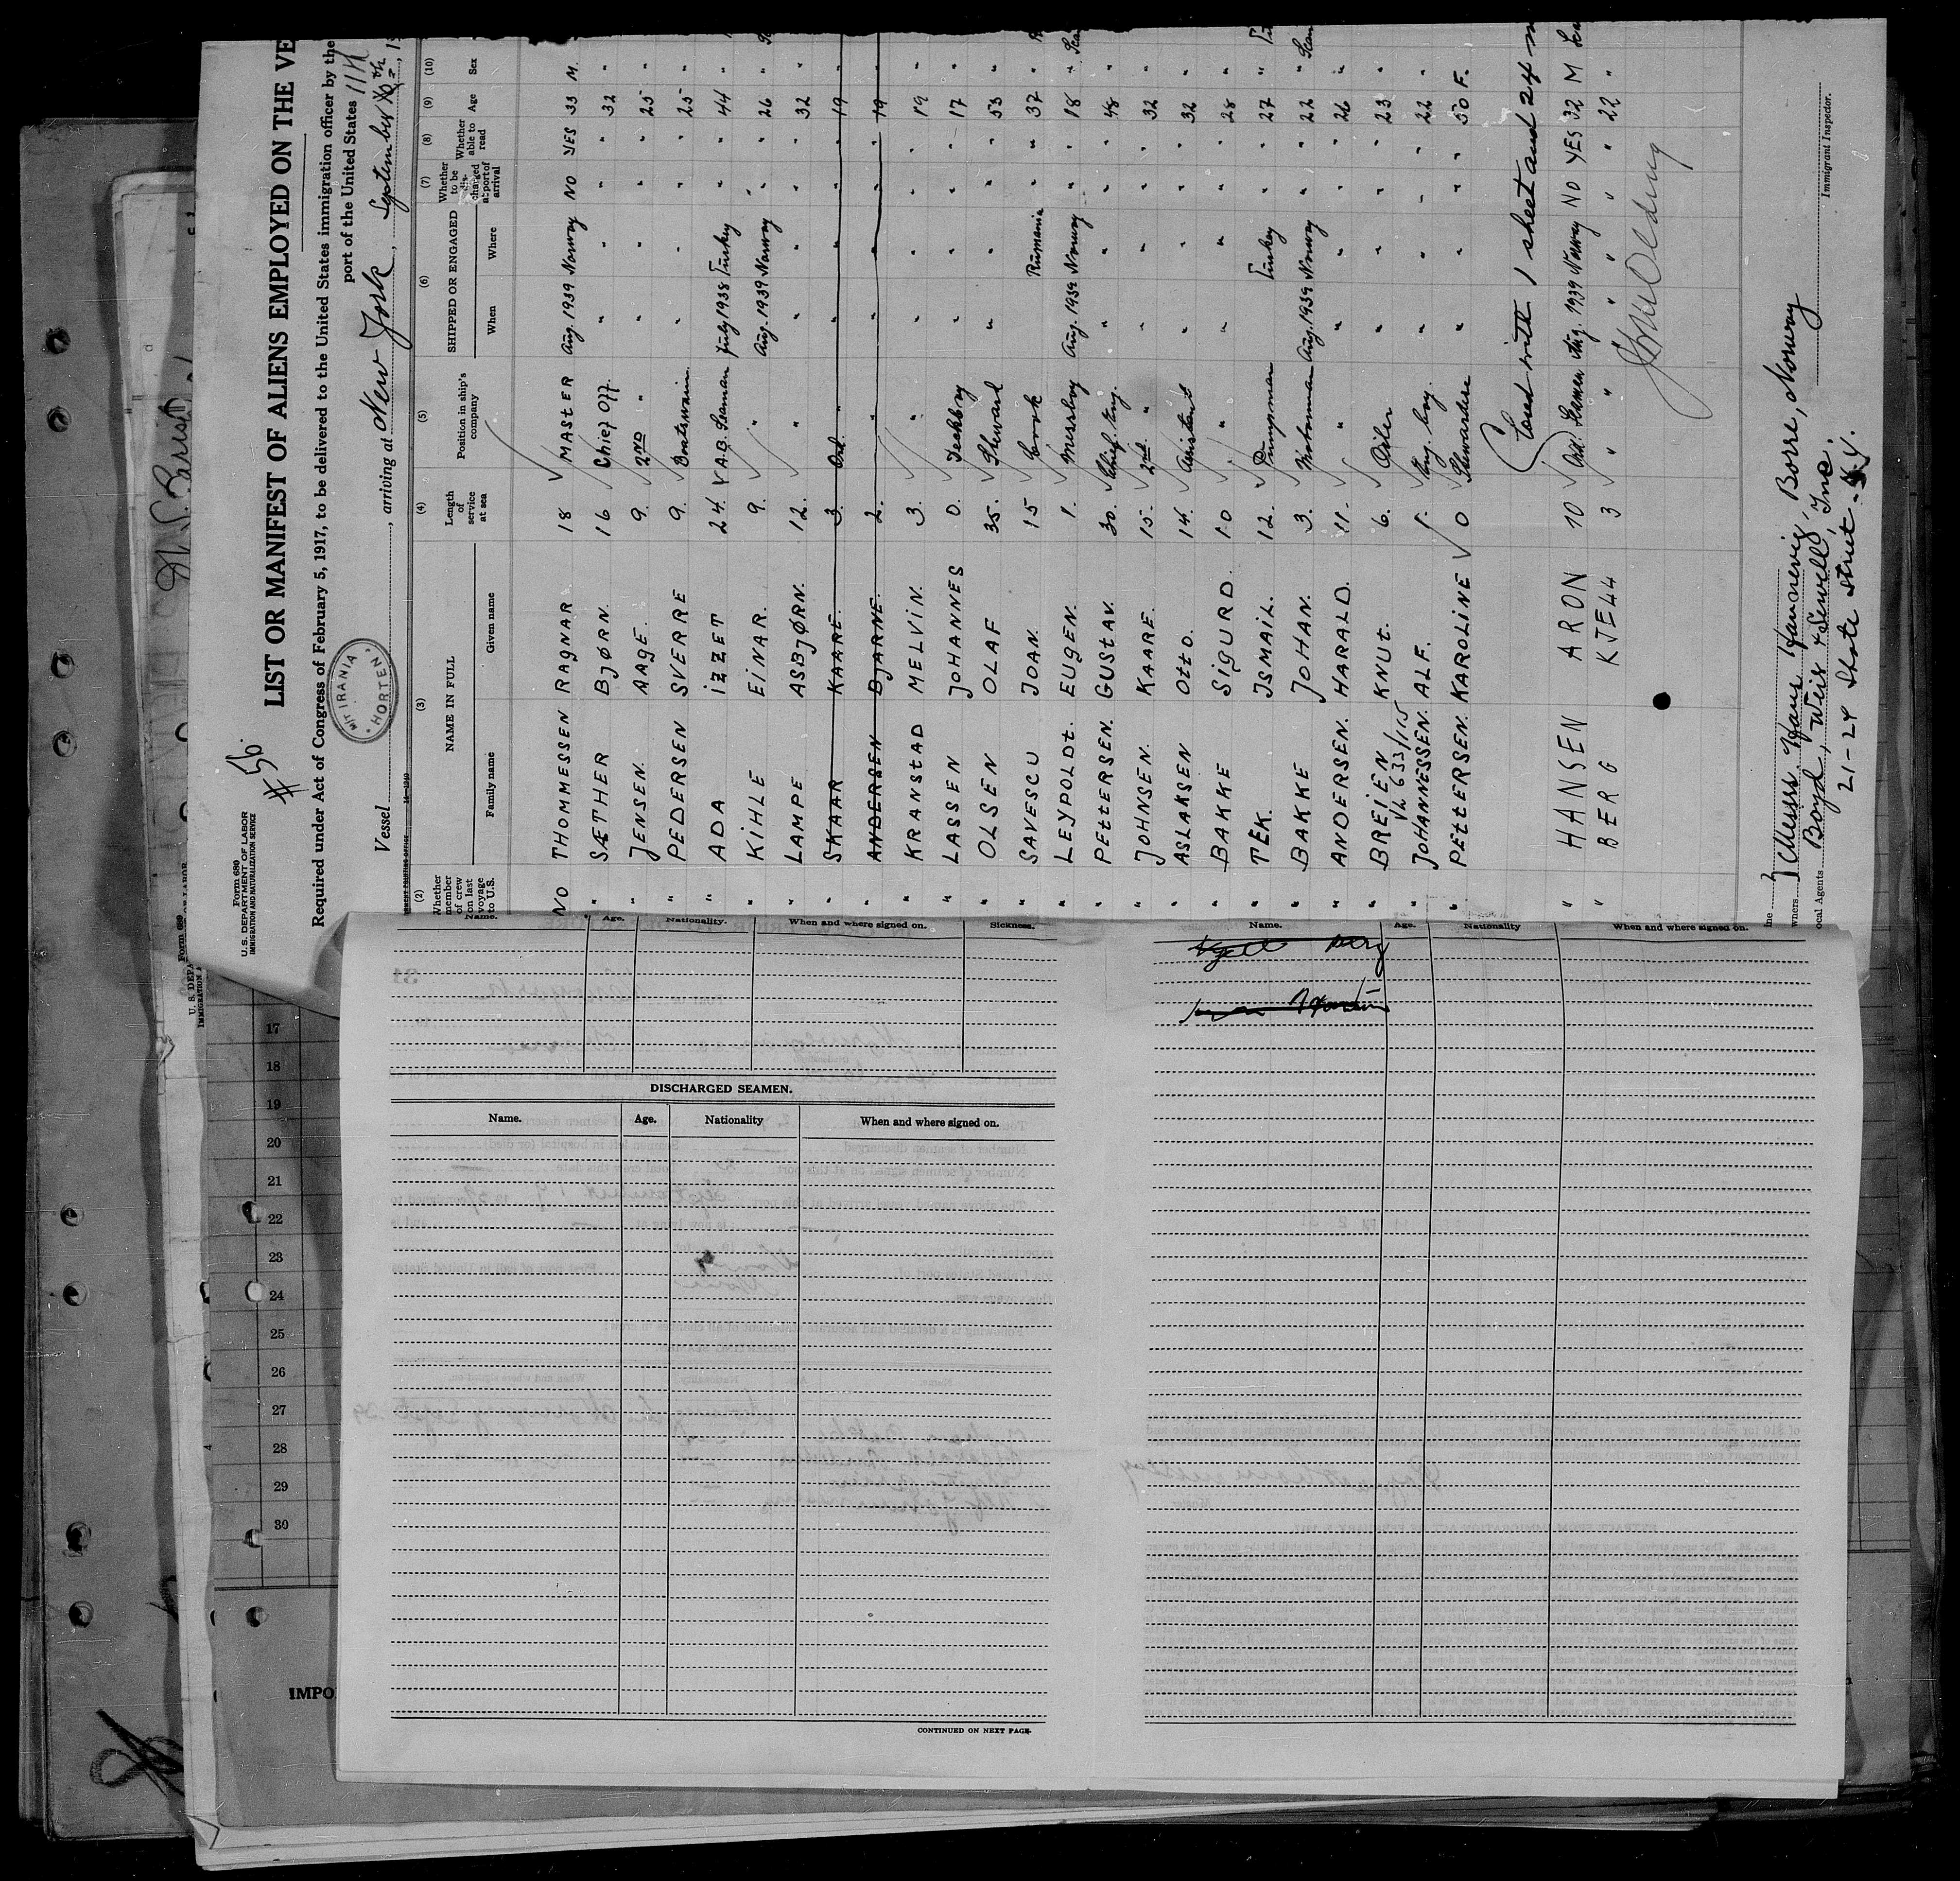 #56.
Form 680
U.S. DEPARTMENT OF LABOR
IMMIGRATION AND NATURALIZATION SERVICE
LIST OR MANIFEST OF ALIENS EMPLOYED ON THE VE
Required under Act of Congress of February 5, 1917, to be delivered to the United States immigration officer by the
port of the United States
Vessel M/T IRANIA HORTEN, arriving at New York, September
(2) (3) (4) (5) (6) (7) (8) (9) (10)
Whether member of crew on last voyage to U.S. NAME IN FULL Family name Given name Length of service at sea Position in ship's company SHIPPED OR ENGAGED When Where Whether to be discharged at port of arrival Whether able to read Age Sex
NO THOMMESSEN RAGNAR 18 MASTER Aug. 1939 Norway NO YES 33 M.
" SÆTHER BJØRN. 16 Chief Off. " " " " 32 "
" JENSEN. AAGE. 9. 2ND " " " " " 25 "
" PEDERSEN SVERRE 9. Boatswain. " " " " 25 "
" ADA IZZET 24. A.B. Seaman July 1938 Turkey " " 44 "
" KIHLE EINAR. 9. " Aug. 1939 Norway " " 26 "
" LAMPE ASBJØRN. 12. " " " " " 32 "
" SKAAR KAARE. 3. Ord. " " " " 19 "
" ANDERSEN BJARNE. 2. " " " " " 19 "
" KRANSTAD MELVIN. 3. " " " " " 19 "
" LASSEN JOHANNES 0. Deckboy " " " " 17 "
" OLSEN OLAF 35. Steward " " " " 53 "
" SAVESCU JOAN. 15 Cook Rumania " " 37 "
" LEYPOLDT. EUGEN. 1. Messboy Aug. 1939 Norway " " 18 "
" PETTERSEN. GUSTAV. 30. Chief Eng. " " " " 48 "
" JOHNSEN. KAARE. 15. 2nd. " " " " " 32 "
" ASLAKSEN OTTO. 14. Assistent " " " " 32 "
" BAKKE SIGURD. 10 " " " " " 28 "
" TEK. ISMAIL. 12. Pumpman Turkey " " 27 "
" BAKKE JOHAN. 3. Motorman Aug. 1939 Norway " " 22 "
" ANDERSEN. HARALD. 11. " " " " " 26 "
" BREIEN KNUT. 6. Oiler " " " " 23 "
VL 633/115
" JOHANNESSEN. ALF. 1. Eng. boy. " " " " 22 "
" PETTERSEN. KAROLINE 0 Stewardess " " " " 50 F.
Closed with 1 sheet and 24
" HANSEN ARON 10 Ord. Seamen Aug. 1939 Norway NO YES 32 M
" BERG KJELL 3 " " " " " 22 "
Messrs Hans Hansevig, Borre, Norway
ocal Agents Boyd, Weir & Sewell, Inc.
21-24 State Street. N.Y.
Immigrant Inspector.
Name. Age. Nationality. When and where signed on. Sickness.
DISCHARGED SEAMEN.
Name. Age. Nationality When and where signed on.
CONTINUED ON NEXT PAGE.
Name. Age. Nationality When and where signed on.
Kjell Berg
17
18
19
20
21
22
23
24
25
26
27
28
29
30
IMPO